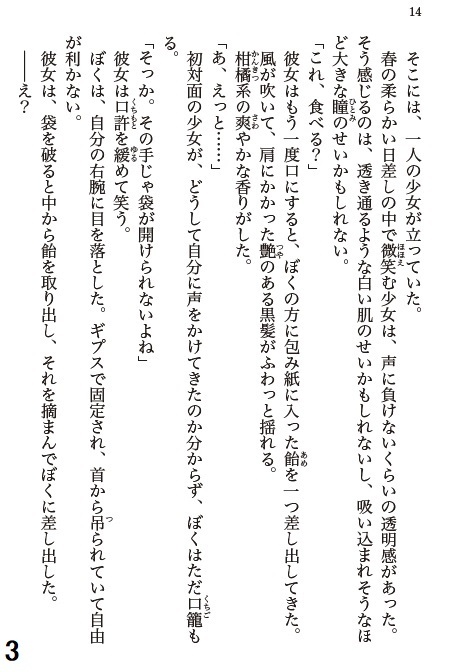 14
そこには、一人の少女が立っていた。
春の柔らかい日差しの中で微笑む少女は、声に負けないくらいの透明感があった。
そう感じるのは、透き通るような白い肌のせいかもしれないし、吸い込まれそうなほ
ど大きな瞳のせいかもしれない。
「これ、食べる？」
彼女はもう一度口にすると、ぼくの方に包み紙に入った飴を一つ差し出してきた。
風が吹いて、肩にかかった艶のある黒髪がふわっと揺れる。
柑橘系の爽やかな香りがした。
「あ、えっと……」
初対面の少女が、どうして自分に声をかけてきたのか分からず、ぼくはただ口籠も
る。
「そっか。その手じゃ袋が開けられないよね」
彼女は口許を緩めて笑う。
ぼくは、自分の右腕に目を落とした。ギプスで固定され、首から吊られていて自由
が利かない。
彼女は、袋を破ると中から飴を取り出し、それを摘まんでぼくに差し出した。
――え？
3